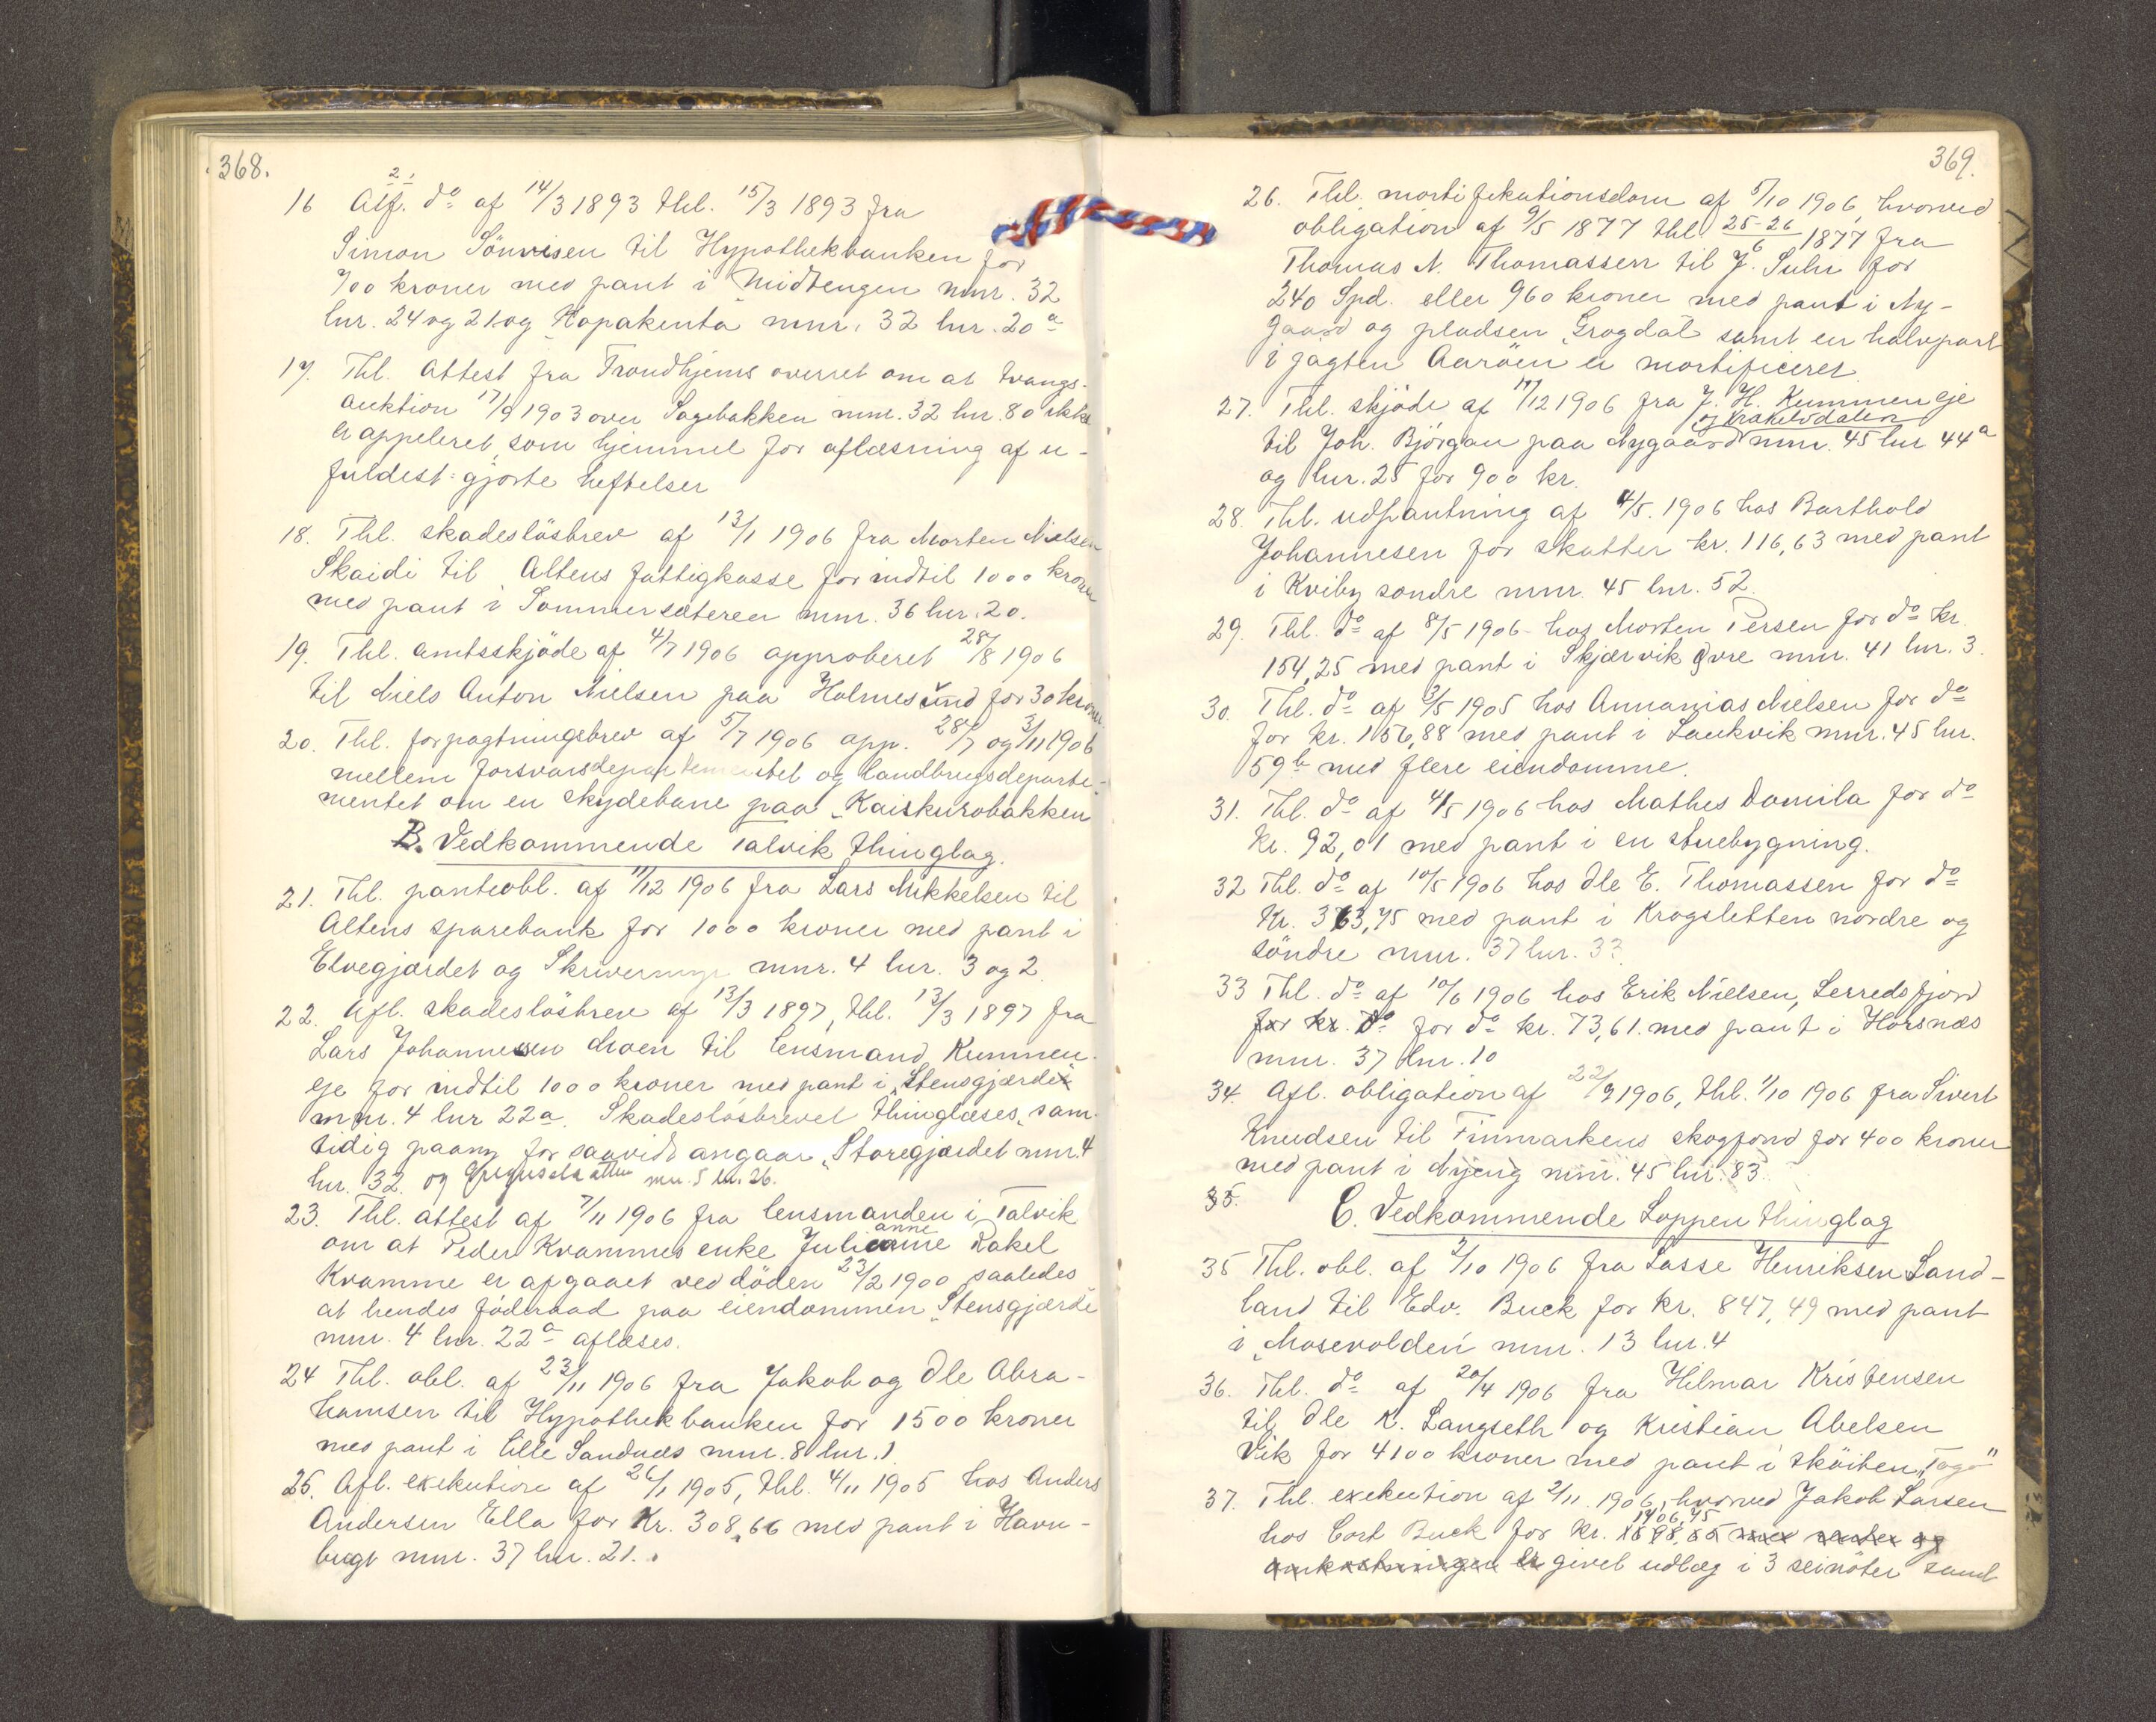 368.
16 Alf. do af 14/3 1893 thl. 15/3 1893 fra
Simon Sönvisen til Hypothekbanken for
700 kroner med pant i Midtengen mnr. 32
lnr. 24 og 21 og Kopakenta mnr. 32 lnr. 20a
17. Thl. attest fra Trondhjems overret om at tvangs-
auktion 17/9 1903 over Sagebakken mnr. 32 lnr. 80 ikke
er appeleret, som hjemmel for aflæsning af u-
fuldest:gjorte heftelser
18. Thl. skadeslösbrev af 13/1 1906 fra Morten Nielsen
Skaidi til Altens fattigkasse for indtil 1000 kroner
med pant i Sommersæteren mnr. 36 lnr. 20.
19. Thl. amtsskjöde af 4/7 1906 approberet 28/8 1906
til Niels Anton Nielsen paa Holmesund for 30 kroner
20. Thl. forpagtningsbrev af 5/7 1906 app. 28/7 og 3/11 1906
mellem forsvarsdepartementet og landbrugsdeparte-
mentet om en skydebane paa „Kaiskurobakken
B. Vedkommende Talvik thinglag.
21. Thl. panteobl. af 11/12 1906 fra Lars Mikkelsen til
Altens sparebank for 1000 kroner med pant i
Elvegjærdet og mnr. 4 lnr. 3 og 2
22. Afl. skadeslösbrev af 13/3 1897, thl. 13/3 1897 fra
Lars Johannessen Moen til lensmand Kummen-
eje for indtil 1000 kroner med pant i „Stensgjærde
mnr. 4 lnr 22a. Skadeslösbrevet thinglæses, sam-
tidig paany for saavidt angaar „Storegjærdet mnr. 4
lnr. 32. og mnr. 5 lnr. 26.
23. Thl. attest af 7/11 1906 fra lensmanden i Talvik
anne
om at Peder Kvammes enke Julianne Rakel
Kvamme er afgaaet ved döden 23/2 1900 saaledes
at hendes föderaad paa eiendommen „Stensgjærde
mnr. 4 lnr. 22a aflæses.
24 Thl. obl. af 23/11 1906 fra Jakob og Ole Abra-
hamsen til Hypothekbanken for 1500 kroner
med pant i lille Sandnæs mnr. 8 lnr. 1
25. Afl. exekution af 26/1 1905, thl. 4/11 1905 hos Anders
Andersen Ella for Kr. 308,66 med pant i Havn-
bugt mnr. 37 lnr. 21.
369.
26. Thl. mortifikationsdom af 5/10 1906, hvorved
obligation af 9/5 1877 thl. 25-26/6 1877 fra
Thomas N. Thomassen til J. Suhr for
240 Spd. eller 960 kroner med pant i Ny-
gaard og pladsen „Grogdal samt en halvpart
i jagten Aaröen er mortificeret
27. Thl. skjöde af 11/12 1906 fra J. H. Kummeneje
og Krakelvdalen
til Joh. Björgan paa Nygaard mnr. 45 lnr 44a
og lnr. 25 for 900 kr.
28. Thl. udpantning af 4/5. 1906 hos Barthold
Johannesen for skatter kr. 116,63 med pant
i Kviby söndre mnr. 45 lnr. 52.
29. Thl. do af 8/5 1906 hos Morten Persen for do kr.
154,25 med pant i Skjærvik övre mnr. 41 lnr. 3.
30. Thl. do af 3/5 1905 hos Annanias Nielsen for do
for kr. 156,88 med pant i Laukvik mnr. 45 lnr.
59b med flere eiendomme.
31. Thl. do af 4/5 1906 hos Mathes Domila for do
kr. 92,01 med pant i en stuebygning.
32 Thl. do af 10/5 1906 hos Ole E. Thomassen for do
Kr. 363,75 med pant i Krogsletten nordre og
söndre mnr. 37 lnr. 33
33 Thl. do af 10/6 1906 hos Erik Nielsen, Lerredsfjord
for kr. do for do kr. 73,61. med pant i Horsnæs
mnr. 37 lnr. 10
34. Afl. obligation af 22/9 1906, thl. 1/10 1906 fra Sivert
Knudsen til Finmarkens skogfond for 400 kroner
med pant i Nyeng mnr. 45 lnr. 83.
35.
C. Vedkommende Loppen thinglag
35 Thl. obl. af 2/10 1906 fra Lasse Henriksen Sand-
land til Edv. Buck for kr. 847,49 med pant
i „Mosevolden mnr. 13 lnr. 4
36. Thl. do af 20/4 1906 fra Hilmar Kristensen
til Ole K. Langseth og Kristian Abelsen
Vik for 4100 kroner med pant i sköiten „Togo"
37. Thl. exekution af 2/11. 1906, hvorved Jakob Larsen
1406,45
hos Cort Buck for kr. med renter og
omkostninger er givet udlæg i 3 seinöter samt